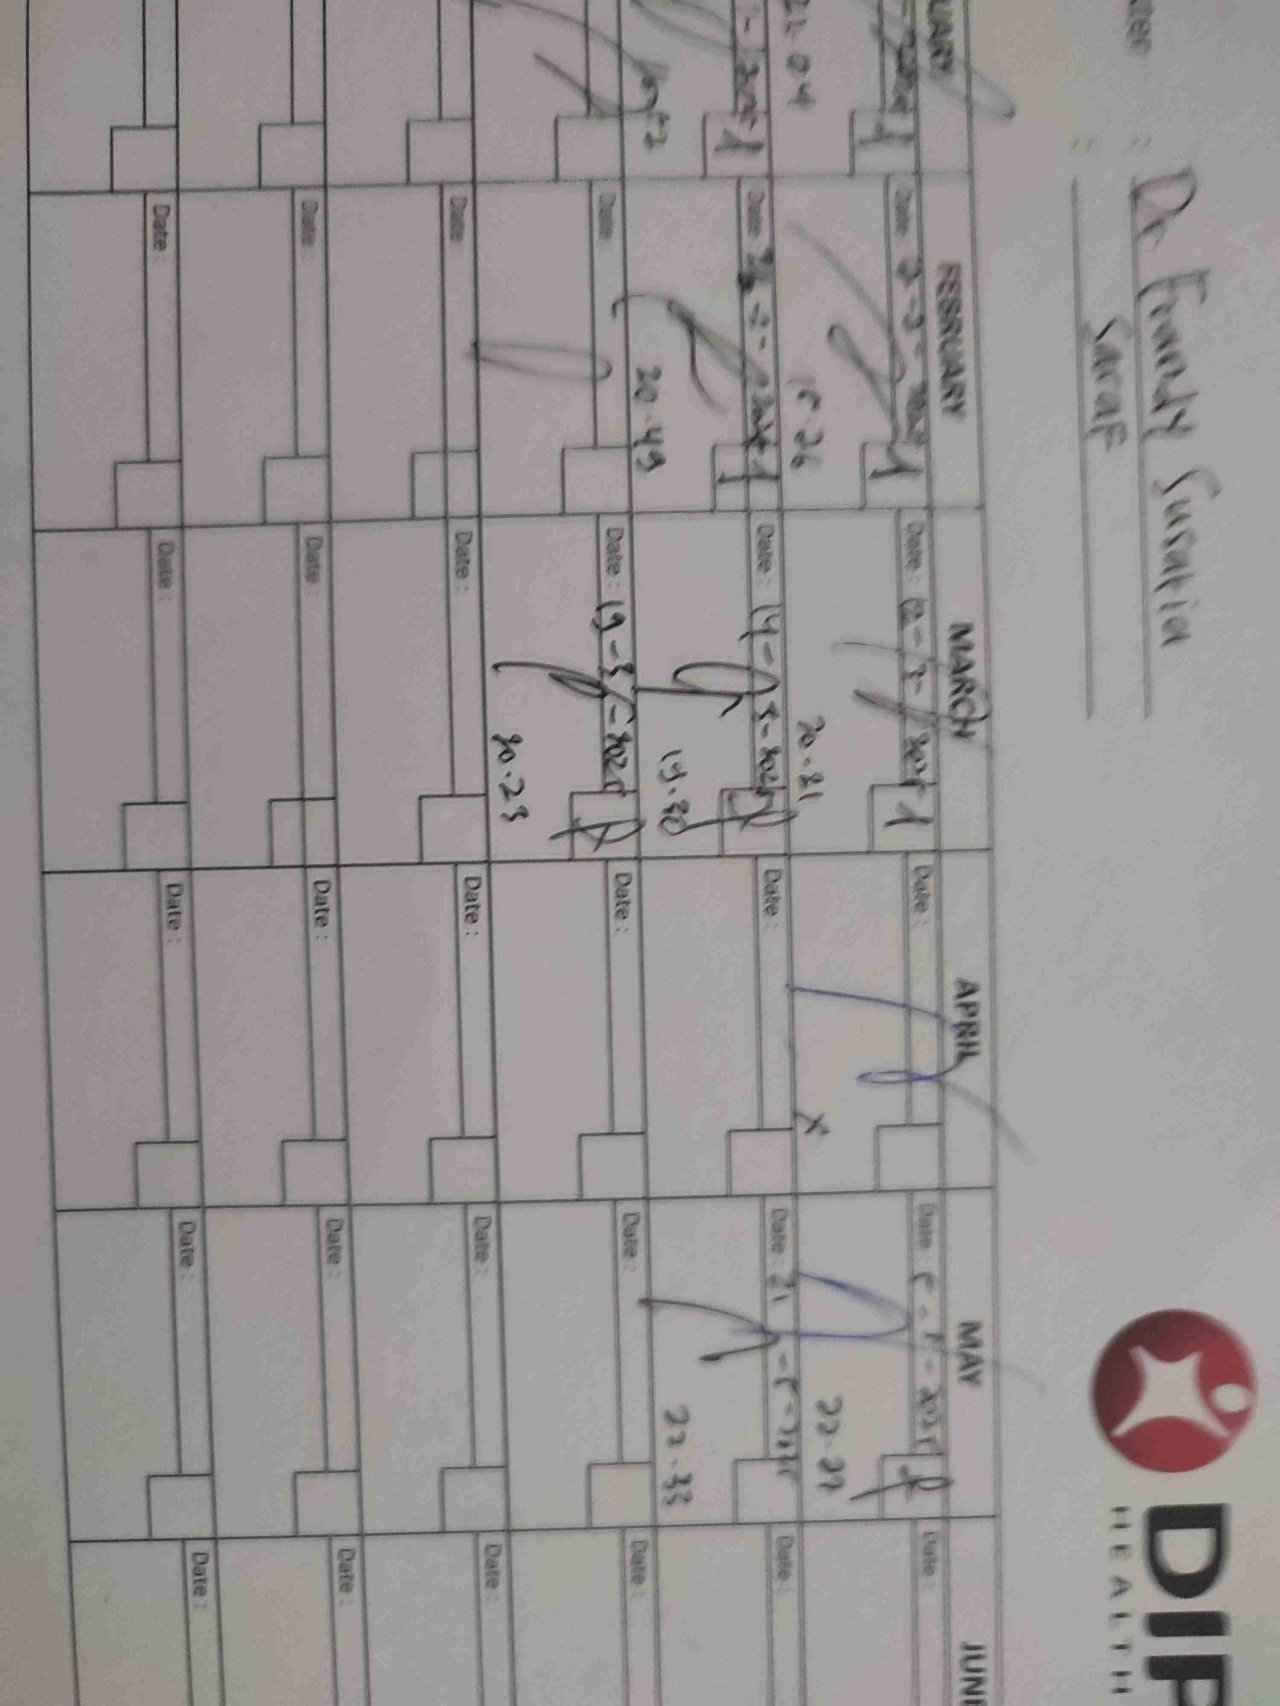 : Dr Frandy Susatia
: Saraf
DIP
HEALTH
UARY FEBRUARY MARCH APRIL MAY JUNE
Date: 3-2-2025 Date: 12-3-2025 Date: Date: 5-5-2025 Date:
21.04 15.26 20.21 x 22.27
Date: Date: 14-3-2025 Date: Date: 21-5-2025 Date:
20.49 22.33
Date: Date: 19-3-2025 Date: Date: Date:
20.23
Date: Date: Date: Date: Date:
Date: Date: Date: Date: Date:
Date: Date: Date: Date: Date: